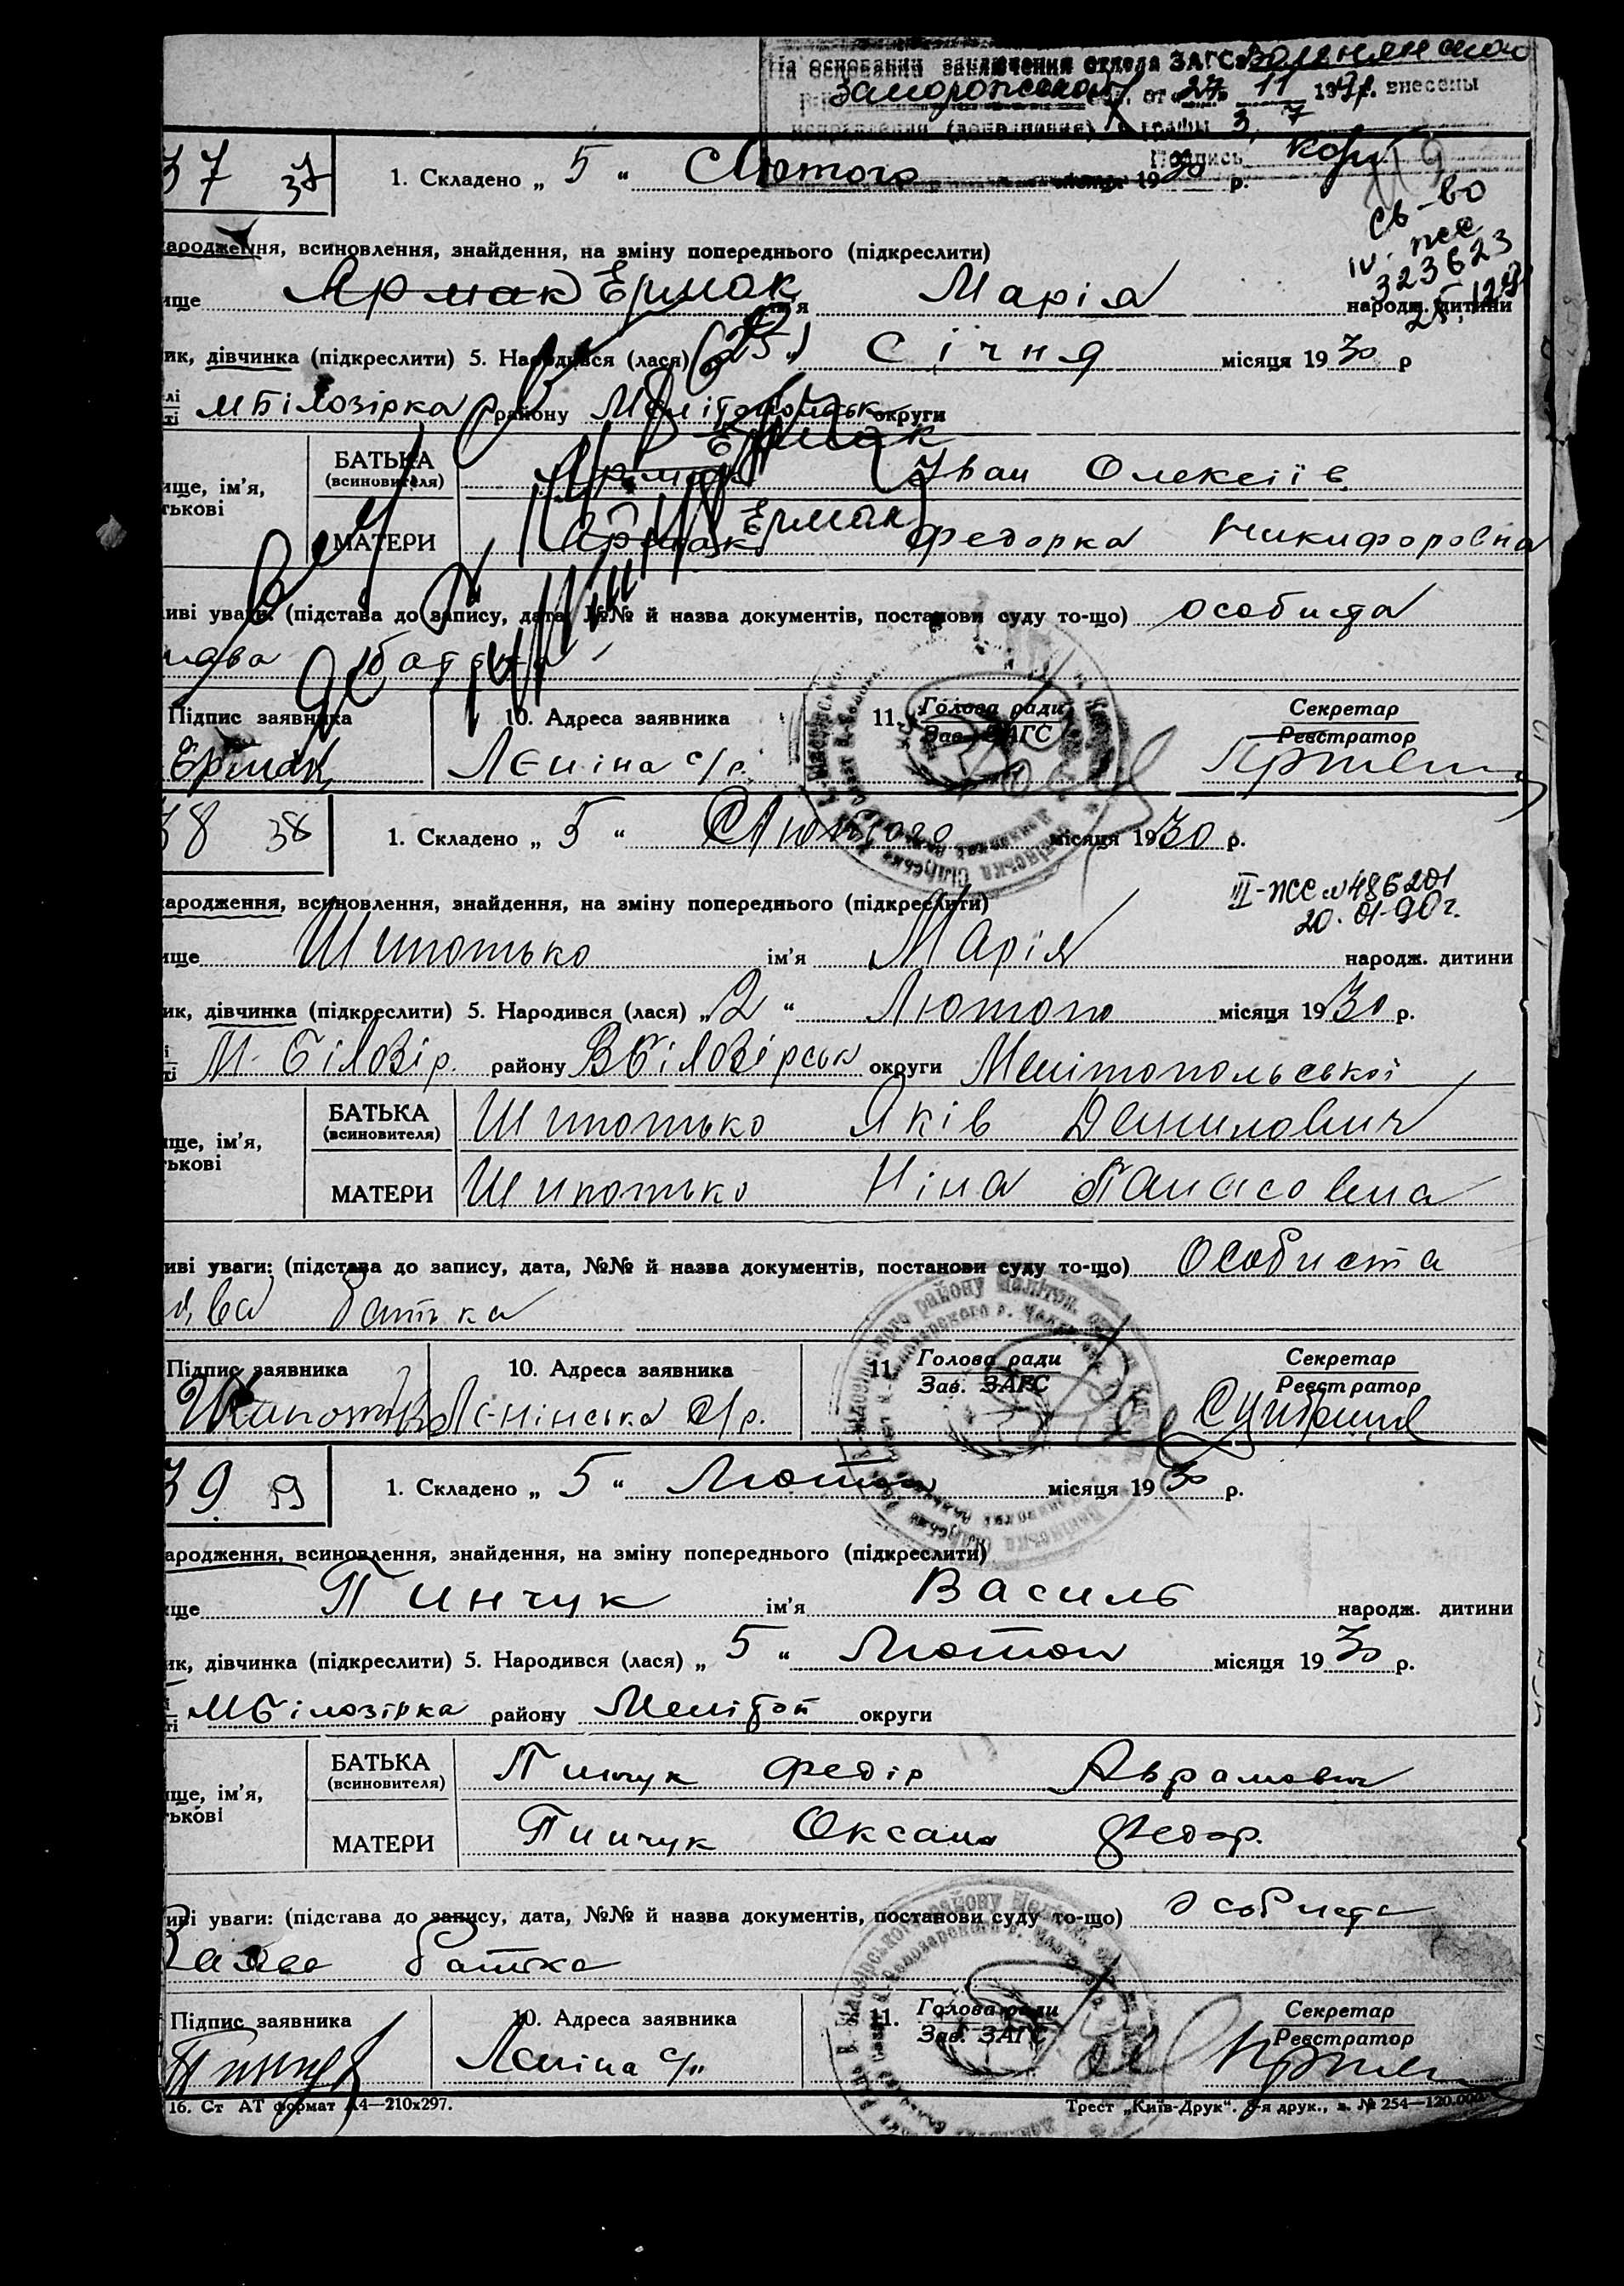 На основании заключения отдела ЗАГС Вольнянского
Запорожской от 27 11 внесены
исправления (дополнения) в графы 3, 7
Подпись
37 37
1. Складено „ 5 “ Лютого 1930 р.
св-во
IV. жс
323623
ародження, всиновлення, знайдення, на зміну попереднього (підкреслити)
ище Ярмак Ермак ім'я Марія народж. дитини
ик, дівчинка (підкреслити) 5. Народився (лася) „25“ Січня місяця 1930 р
МБілозірка району Мелітопольськ округи
Ермак
БАТЬКА
(всиновителя) Ярмак Іван Олексіїв
ище, ім'я,
тькові
МАТЕРИ Ярмак Ермак Федорка Никифоровна
иві уваги: (підстава до запису, дата, №№ й назва документів, постанови суду то-що) особиста
батька
Підпис заявника 10. Адреса заявника 11. Голова ради Секретар
Зав. ЗАГС Реєстратор
Ермак Леніна с/р.
38 38
1. Складено „ 5 “ Лютого місяця 1930 р.
III-жс №486201
20. 01-90г.
ародження, всиновлення, знайдення, на зміну попереднього (підкреслити)
ище Шипотько ім'я Марія народж. дитини
ик, дівчинка (підкреслити) 5. Народився (лася) „2“ Лютого місяця 1930 р.
М-Білозір. району ВБілозірськ округи Мелітопольської
БАТЬКА
(всиновителя) Шипотько Яків Данилович
ище, ім'я,
тькові
МАТЕРИ Шипотько Ніна Панасовна
иві уваги: (підстава до запису, дата, №№ й назва документів, постанови суду то-що) Особиста
ява батька
Підпис заявника 10. Адреса заявника 11. Голова ради Секретар
Зав. ЗАГС Реєстратор
Ленінська С/р.
39. 39
1. Складено „ 5 “ Лютого місяця 1930 р.
ародження, всиновлення, знайдення, на зміну попереднього (підкреслити)
ище Пинчук ім'я Василь народж. дитини
ик, дівчинка (підкреслити) 5. Народився (лася) „ 5 “ Лютого місяця 1930 р.
МБілозірка району Мелітоп округи
БАТЬКА
(всиновителя) Пинчук Федір Аврамович
ище, ім'я,
тькові
МАТЕРИ Пинчук Оксана Федор.
иві уваги: (підстава до запису, дата, №№ й назва документів, постанови суду то-що) особиста
Заява батька
Підпис заявника 10. Адреса заявника 11. Голова ради Секретар
Зав. ЗАГС Реєстратор
Пинчук Леніна с/р
16. Ст АТ формат А4—210х297. Трест „Київ-Друк“. я друк., з. № 254—120.000